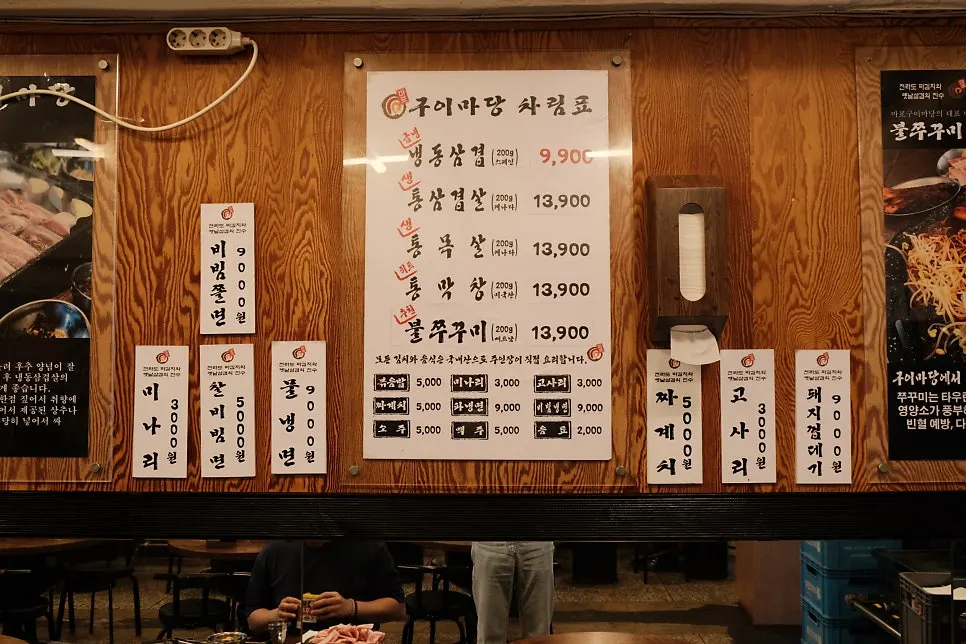 구이마당 차림표
급냉
냉동삼겹 (200g 스페인) 9,900
생
통삼겹살 (200g 캐나다) 13,900
생
통목살 (200g 캐나다) 13,900
히트
통막창 (200g 미국산) 13,900
추천
불쭈꾸미 (200g 베트남) 13,900
모든 김치와 음식은 국내산으로 주인장이 직접 요리합니다.
볶음밥 5,000 미나리 3,000 고사리 3,000
짜계치 5,000 물냉면 9,000 비빔냉면 9,000
소주 5,000 맥주 5,000 음료 2,000
전라도 묵김치와
옛날삼겹의 진수
비빔쫄면 9000원
미나리 3000원
잔비빔면 5000원
물냉면 9000원
짜계치 5000원
고사리 3000원
돼지껍데기 9000원
불쭈꾸미
후추 양념이 잘
후 냉동삼겹살의
게 좋습니다.
한점 찢어서 취향에
어서 제공된 상추나
당히 넣어서 싸
구이마당에서
쭈꾸미는 타우린
영양소가 풍부
빈혈 예방, 다